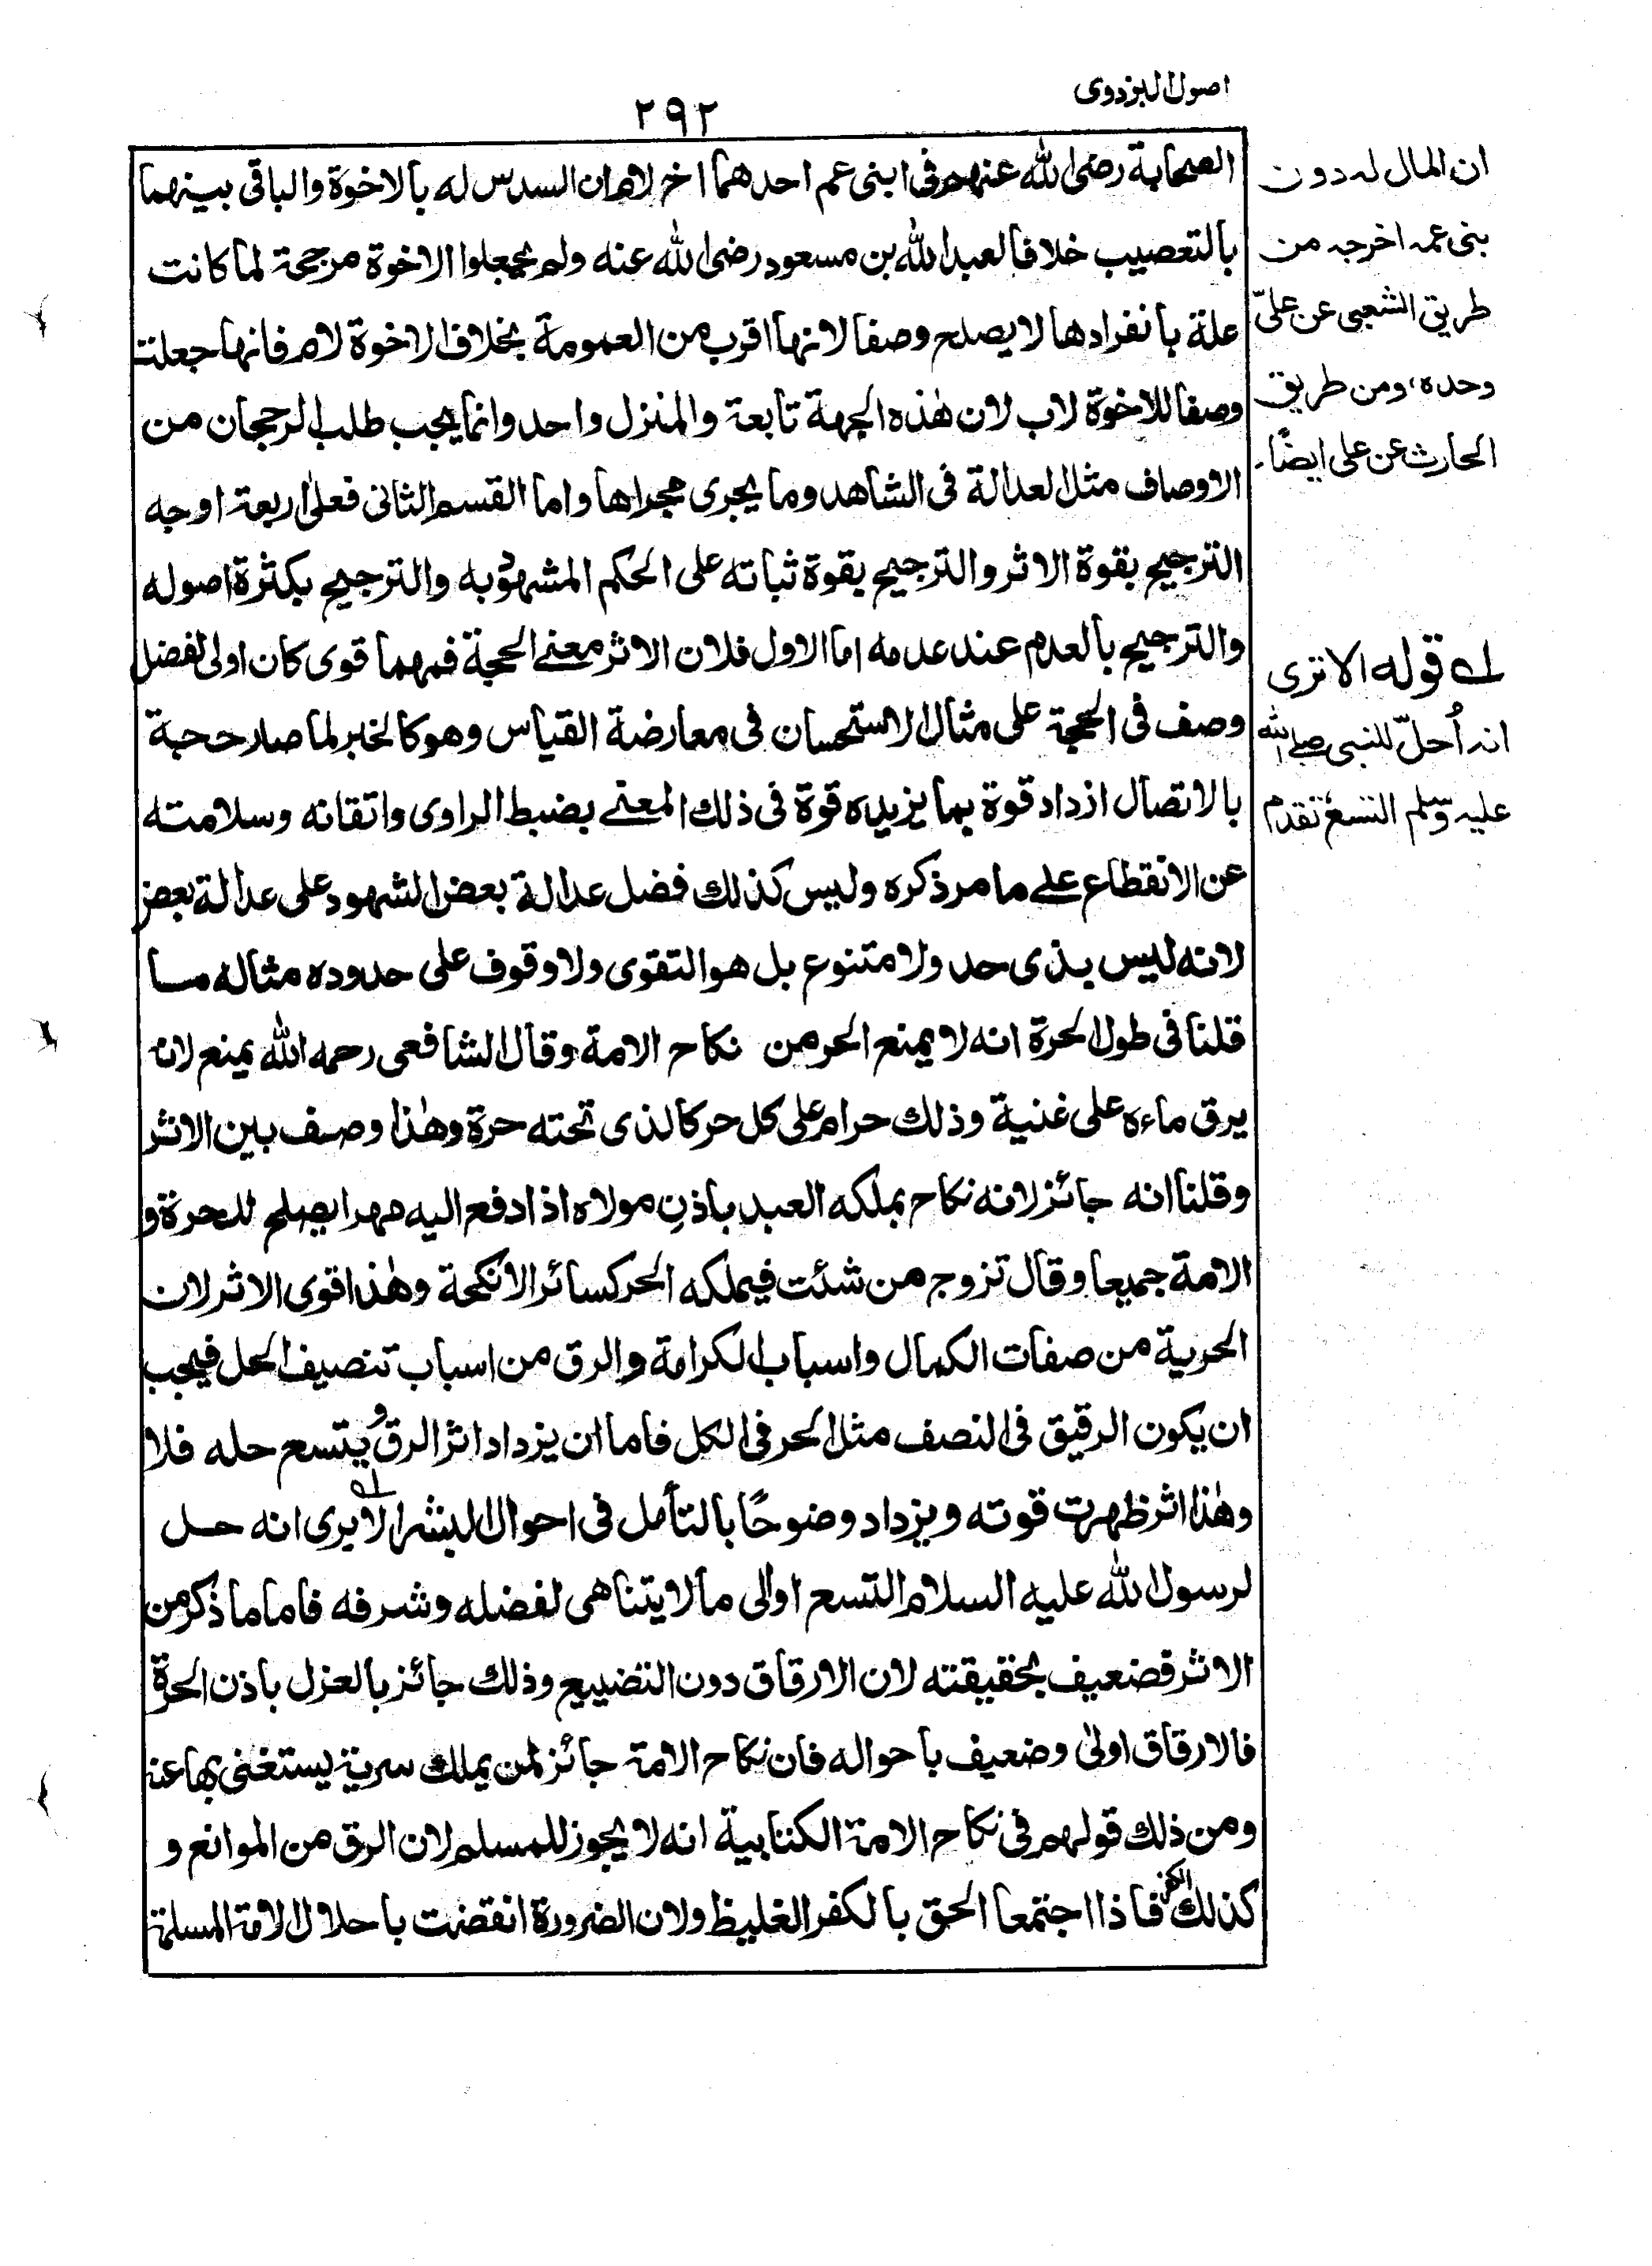 اصول البزدوى
٢٩٢
الصحابة رضى الله عنهم فى ابنى عم احدهما اخ لام ان السدس له بالاخوة والباقى بينهما
بالتعصيب خلافا لعبد الله بن مسعود رضى الله عنه ولم يجعلوا الاخوة مرجحة لما كانت
علة بانفرادها لا يصلح وصفا لانها اقرب من العمومة بخلاف الاخوة لام فانها جعلت
وصفا للاخوة لاب لان هٰذه الجهة تابعة والمنزل واحد وانما يجب طلب الرجحان من
الاوصاف مثل العدالة فى الشاهد وما يجرى مجراها واما القسم الثانى فعلى اربعة اوجه
الترجيح بقوة الاثر والترجيح بقوة ثباته على الحكم المشهود به والترجيح بكثرة اصوله
والترجيح بالعدم عند عدمه اما الاول فلان الاثر معنى الحجة فمهما قوى كان اولى لفضل
وصف فى الحجة على مثال الاستحسان فى معارضة القياس وهو كالخبر لما صار حجة
بالاتصال ازداد قوة بما يزيده قوة فى ذلك المعنے بضبط الراوى واتقانه وسلامته
عن الانقطاع علے ما مر ذكره وليس كذلك فضل عدالة بعض الشهود على عدالة بعض
لانه ليس بذى حد ولا متنوع بل هو التقوى ولا وقوف على حدوده مثاله ما
قلنا فى طول الحرة انه لا يمنع الحر من نكاح الامة وقال الشافعى رحمه الله يمنع لانه
يرق ماءه على غنية وذلك حرام على كل حر كالذى تحته حرة وهٰذا وصف بين الاثر
وقلنا انه جائز لانه نكاح يملكه العبد باذنِ مولاه اذا دفع اليه مهرا يصلح للحرة و
الامة جميعا وقال تزوج من شئت فيملكه الحر كسائر الانكحة وهٰذا اقوى الاثر لان
الحرية من صفات الكمال واسباب الكرامة والرق من اسباب تنصيف الحل فيجب
ان يكون الرقيق فى النصف مثل الحر فى الكل فاما ان يزداد اثر الرق وُيتسع حله فلا
وهٰذا اثر ظهرت قوته ويزداد وضوحًا بالتأمل فى احوال البشر الا له يرى انه حل
لرسول الله عليه السلام التسع اوالى مالا يتناهى لفضله وشرفه فاما ما ذُكر من
الاثر فضعيف بحقيقته لان الارقاق دون التضييع وذلك جائز بالعزل باذن الحرة
فالارقاق اولىٰ وضعيف باحواله فان نكاح الامة جائز لمن يملك سرية يستغنى بها عنه
ومن ذلك قولهم فى نكاح الامة الكتابية انه لا يجوز للمسلم لان الرق من الموانع و
كذلك الكفر فاذا اجتمعا الحق بالكفر الغليظ ولان الضرورة انقضت باحلال الامة المسلمة
ان المال له دون
بنى عمه اخرجه من
طريق الشعبى عن علىّ
وحده، ومن طريق
الحارث عن على ايضًا.
لے قوله الا ترى
انه اُحلّ للنبى صلے الله
عليه وسلم التسع تقدم